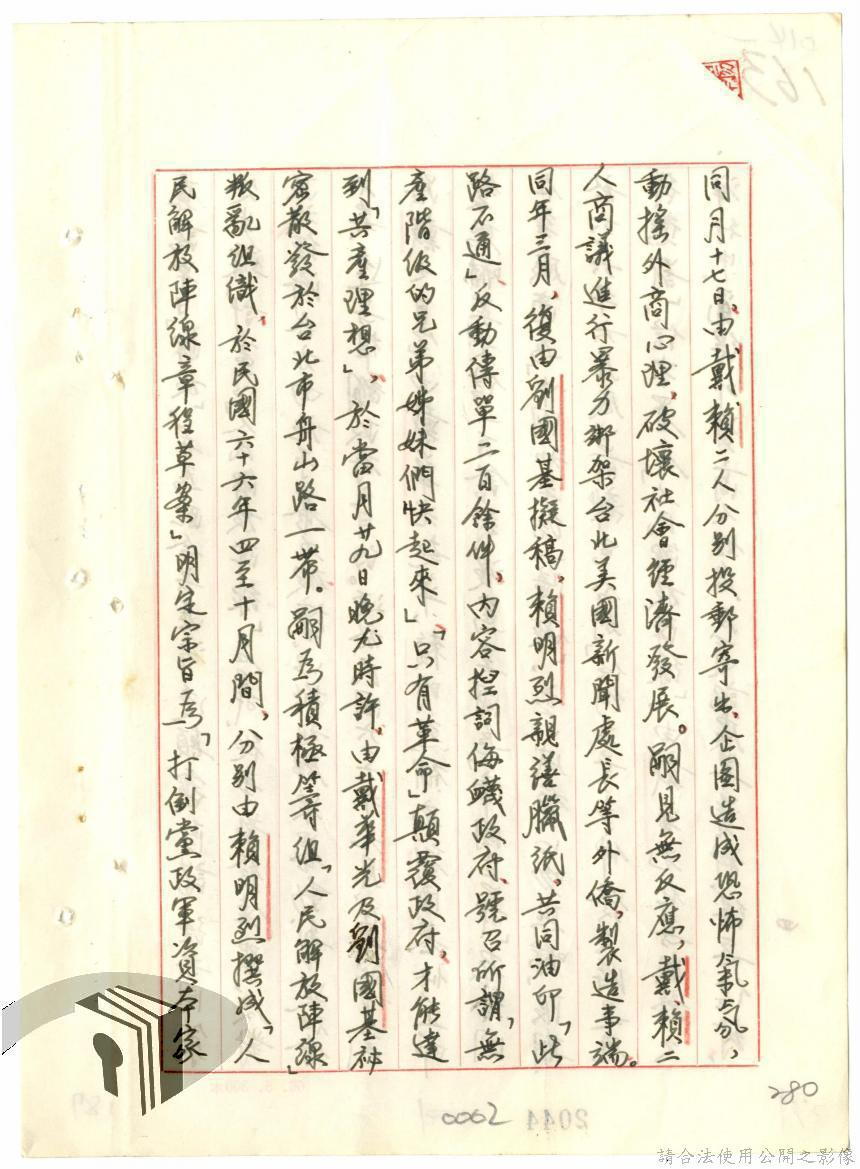 同月十七日，由戴、賴二人分別投郵寄出，企圖造成恐怖氣氛，
動搖外商心理，破壞社會經濟發展。嗣見無反應，戴、賴二
人商議進行暴力綁架台北美國新聞處長等外僑，製造事端。
同年三月，復由劉國基擬稿，賴明烈親繕臘紙，共同油印「此
路不通」反動傳單二百餘件，內容捏詞侮衊政府，號召所謂「無
產階級的兄弟姊妹們快起來」「只有革命」顛覆政府，才能達
到「共產理想」，於當月廿九日晚九時許，由戴華光及劉國基祕
密散發於台北市舟山路一帶。嗣為積極籌組「人民解放陣線」
叛亂組織，於民國六十六年四至十月間，分別由賴明烈撰成「人
民解放陣線章程草案」明定宗旨為「打倒黨政軍資本家
163
280
0062
2044
請合法使用公開之影像